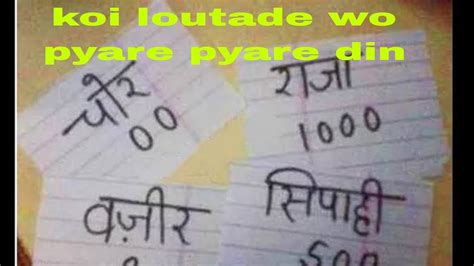 koi loutade wo
pyare pyare din
चोर
00
राजा
1000
वज़ीर
सिपाही
500